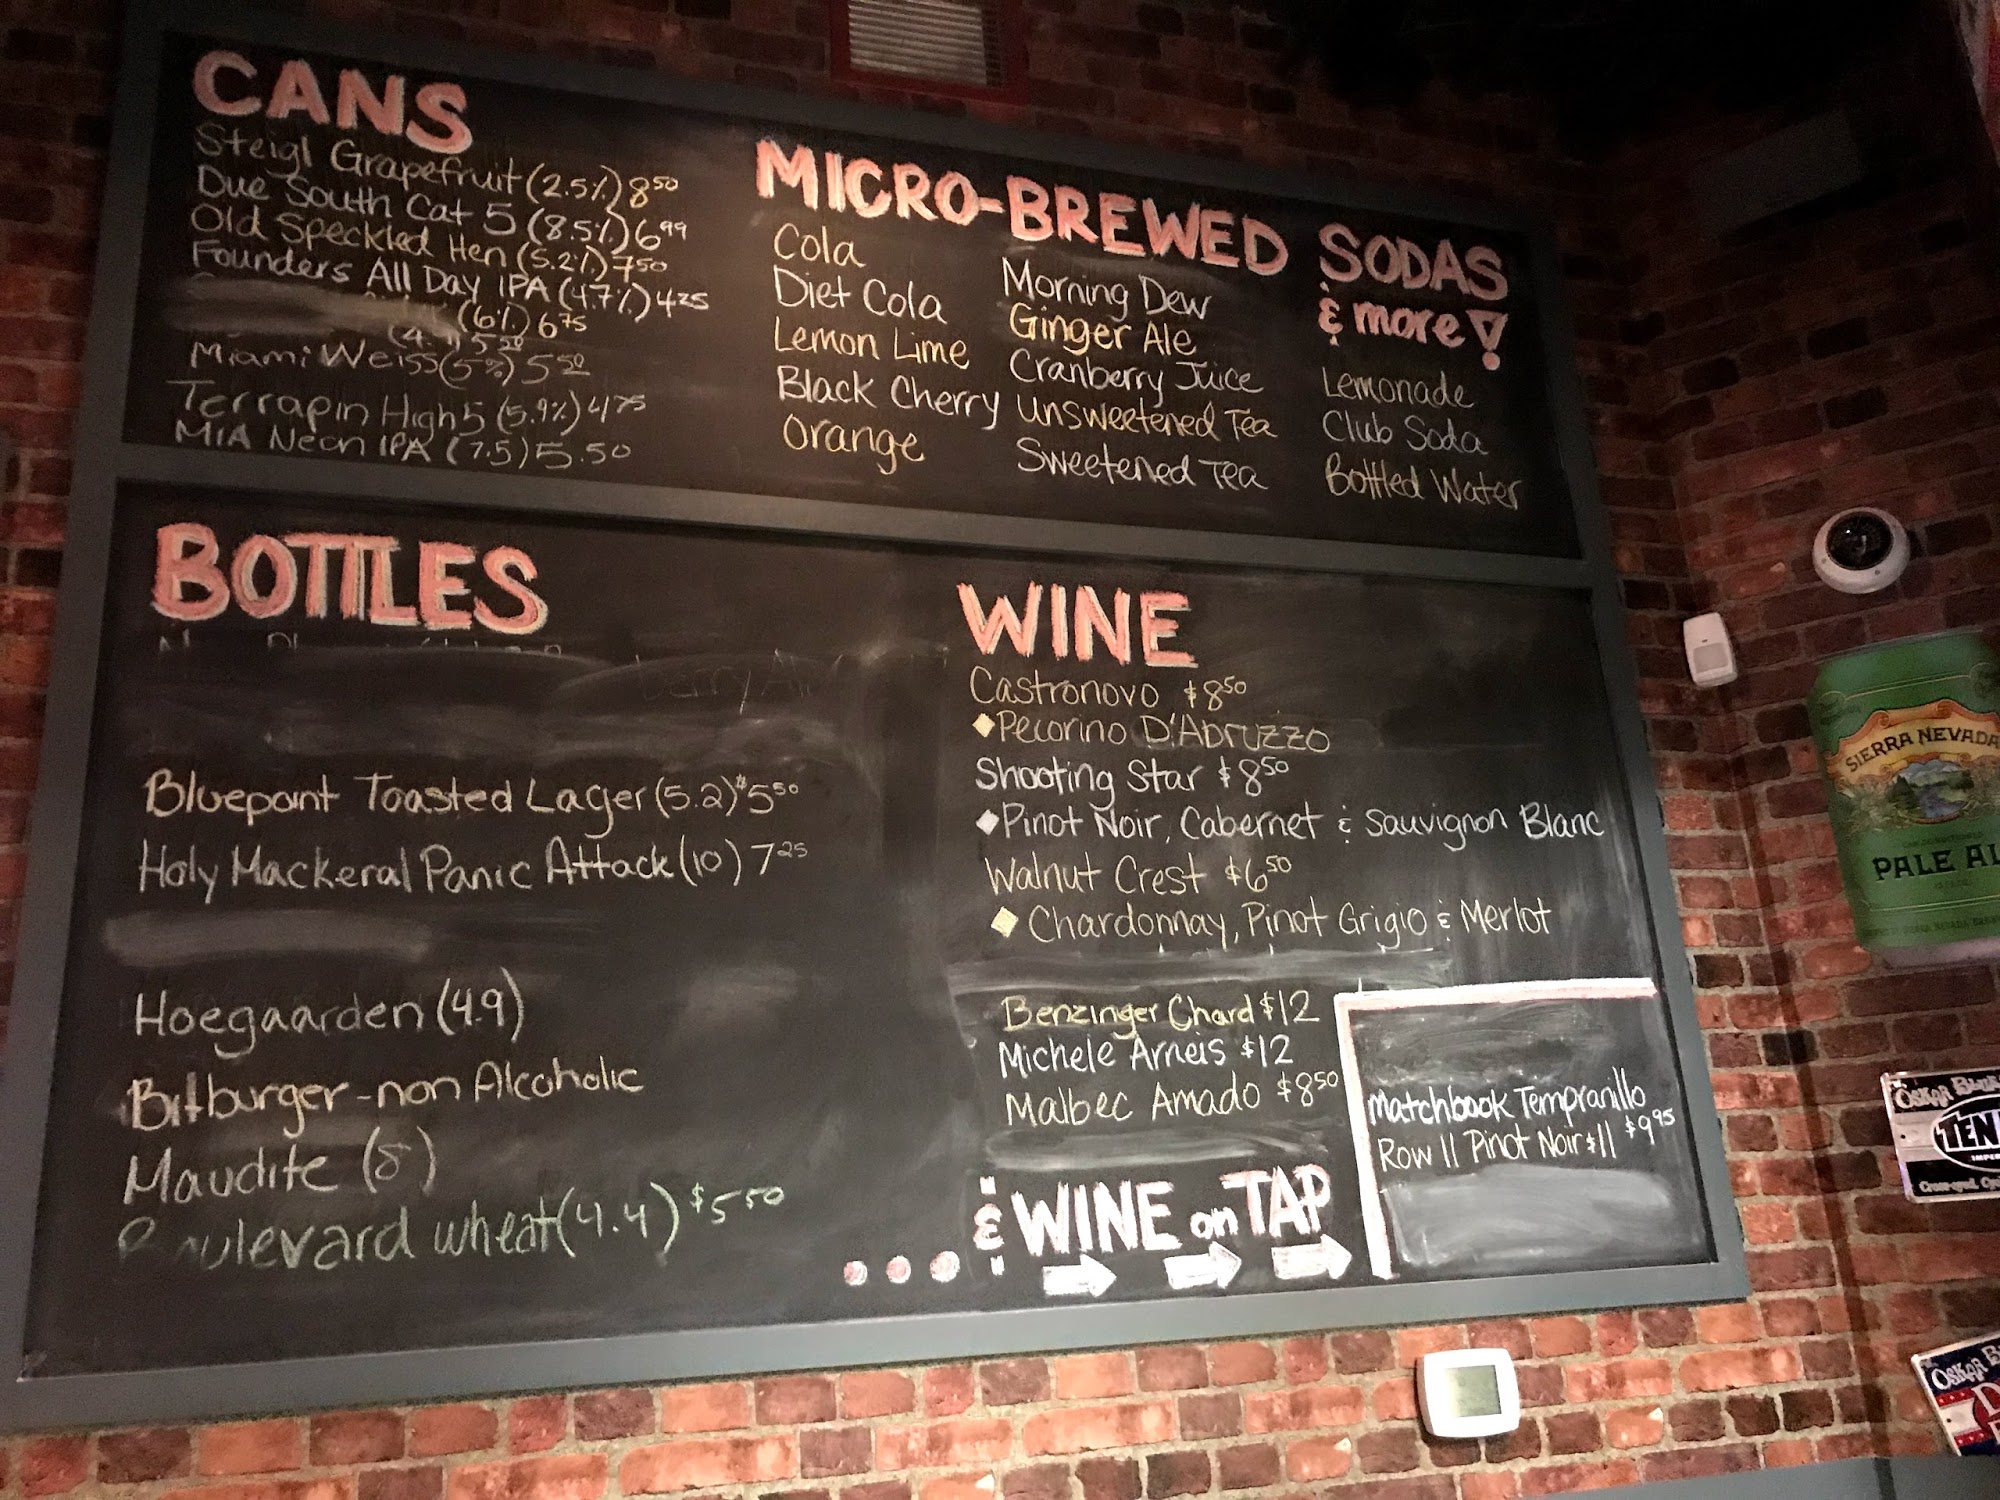 CANS
Steigl Grapefruit (2.5%) 8⁵⁰
Due South Cat 5 (8.5%) 6⁹⁹
Old Speckled Hen (5.2%) 7⁵⁰
Founders All Day IPA (4.7%) 4²⁵
(6%) 6⁷⁵
5⁵⁰
Miami Weiss (5%) 5⁵⁰
Terrapin High 5 (5.9%) 4⁷⁵
MIA Neon IPA (7.5) 5.50
MICRO-BREWED SODAS
& more!
Cola
Diet Cola
Lemon Lime
Black Cherry
Orange
Morning Dew
Ginger Ale
Cranberry Juice
Unsweetened Tea
Sweetened Tea
Lemonade
Club Soda
Bottled Water
BOTTLES
Bluepoint Toasted Lager (5.2) $5⁵⁰
Holy Mackeral Panic Attack (10) 7²⁵
Hoegaarden (4.9)
Bitburger-non Alcoholic
Maudite (8)
Boulevard wheat (4.4) $5⁵⁰
WINE
Castronovo $8⁵⁰
Pecorino D'Abruzzo
Shooting Star $8⁵⁰
Pinot Noir, Cabernet & Sauvignon Blanc
Walnut Crest $6⁵⁰
Chardonnay, Pinot Grigio & Merlot
Benzinger Chard $12
Michele Arneis $12
Malbec Amado $8⁵⁰
& WINE on TAP
Matchbook Tempranillo
$9⁹⁵
Row 11 Pinot Noir $11
SIERRA NEVADA
PALE AL
OSKAR BLU
TEN
IMPE
OSKAR B